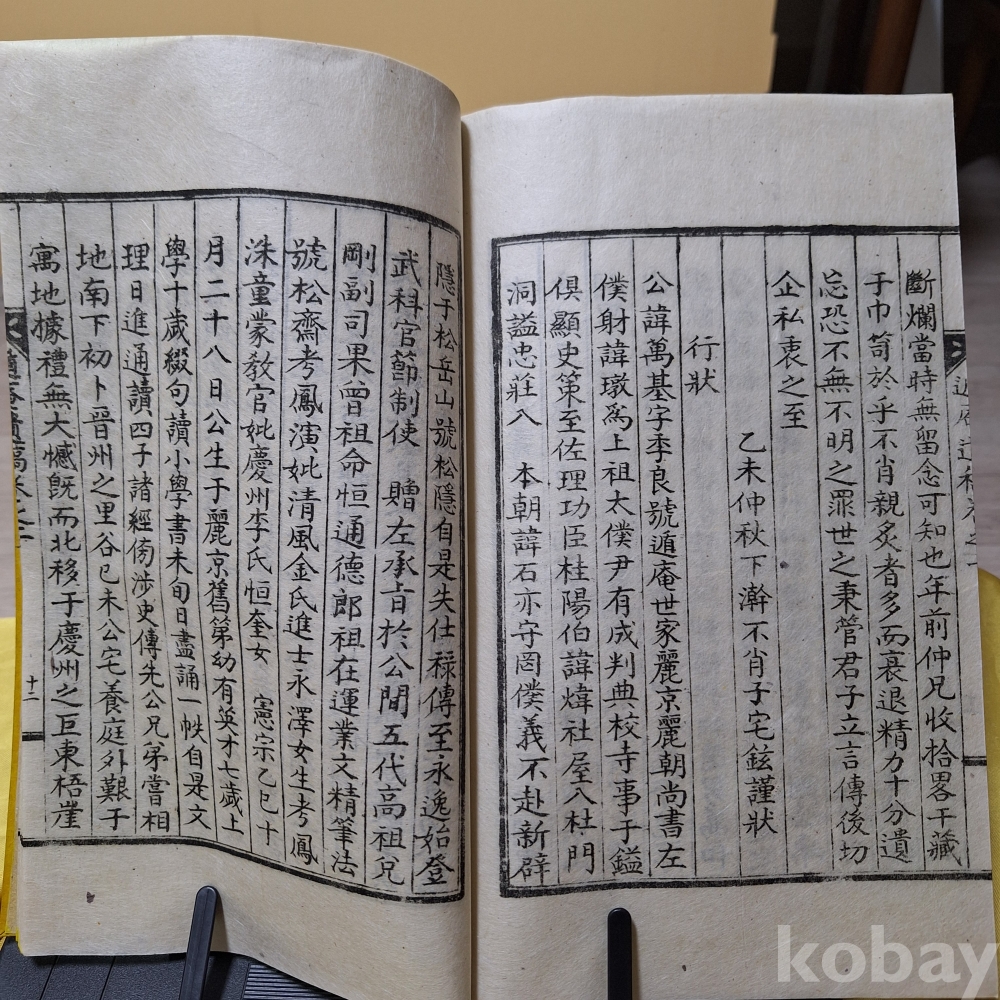 斷爛當時無留念可知也年前仲兄收拾畧干藏
于巾笥於乎不肖親炙者多而衰退精力十分遺
忘恐不無不明之罪世之秉管君子立言傳後切
企私衷之至
乙未仲秋下澣不肖子宅鉉謹狀
行狀
公諱萬基字季良號遁庵世家麗京麗朝尚書左
僕射諱墩爲上祖太僕尹有成判典校寺事子鎰
俱顯史策至佐理功臣桂陽伯諱煒社屋入杜門
洞謚忠莊入 本朝諱石亦守罔僕義不赴新辟
隱于松岳山號松隱自是失仕祿傳至永逸始登
武科官節制使 贈左承旨於公間五代高祖兄
剛副司果曾祖命恒通德郞祖在運業文精筆法
號松齋考鳳演妣清風金氏進士永澤女生考鳳
洙童蒙敎官妣慶州李氏恒奎女 憲宗乙巳十
月二十八日公生于麗京舊第幼有英才七歲上
學十歲綴句讀小學書未旬日盡誦一帙自是文
理日進通讀四子諸經傍涉史傳先公兄弟嘗相
地南下初卜晋州之里谷已未公宅養庭外艱于
寓地據禮無大憾旣而北移于慶州之巨東梧崖
十二
kobay